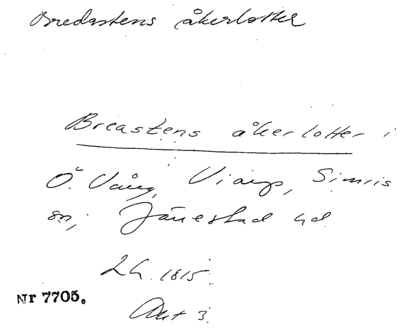 Bredastens åkerlotter
Breastens åkerlotter i
Ö. Vång, Viarps, Simris
sn; Järrestad hd
LH. 1815.
Akt 3.
Nr 7705.